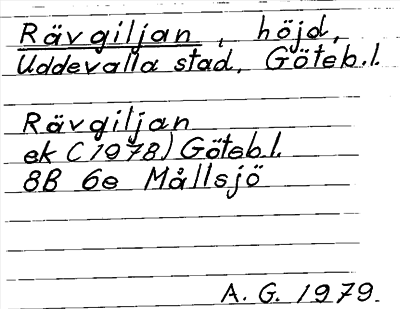 Rävgiljan, höjd,
Uddevalla stad, Göteb.l.
Rävgiljan
ek (1978) Göteb.l.
8B 6e Mållsjö
A. G. 1979.